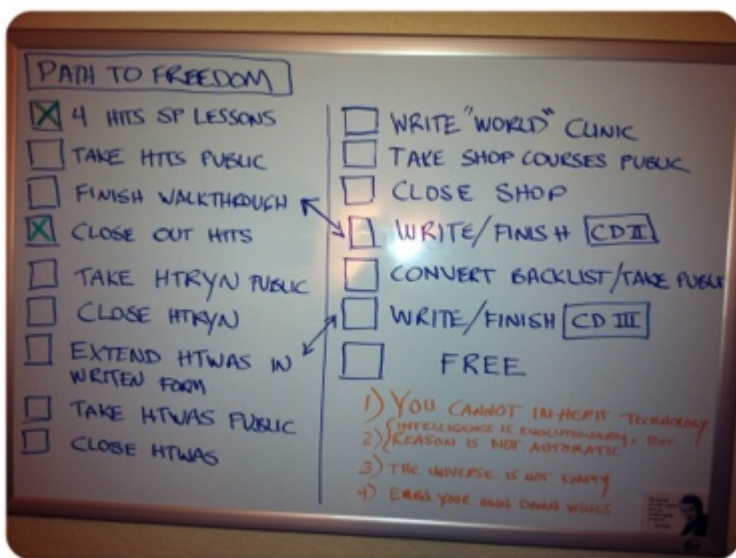 PATH TO FREEDOM
4 HITS SP LESSONS
TAKE HTTS PUBLIC
FINISH WALKTHROUGH
CLOSE OUT HTTS
TAKE HTRYN PUBLIC
CLOSE HTRYN
EXTEND HTWAS IN
WRITEN FORM
TAKE HTWAS PUBLIC
CLOSE HTWAS
WRITE "WORLD" CLINIC
TAKE SHOP COURSES PUBLIC
CLOSE SHOP
WRITE/FINISH CD II
CONVERT BACKLIST/TAKE PUBLIC
WRITE/FINISH CD III
FREE
1) YOU CANNOT INHERIT TECHNOLOGY
2) INTELLIGENCE IS EVOLUTIONARY, BUT
REASON IS NOT AUTOMATIC
3) THE UNIVERSE IS NOT EMPTY
4) EARN YOUR OWN DAMN WINGS